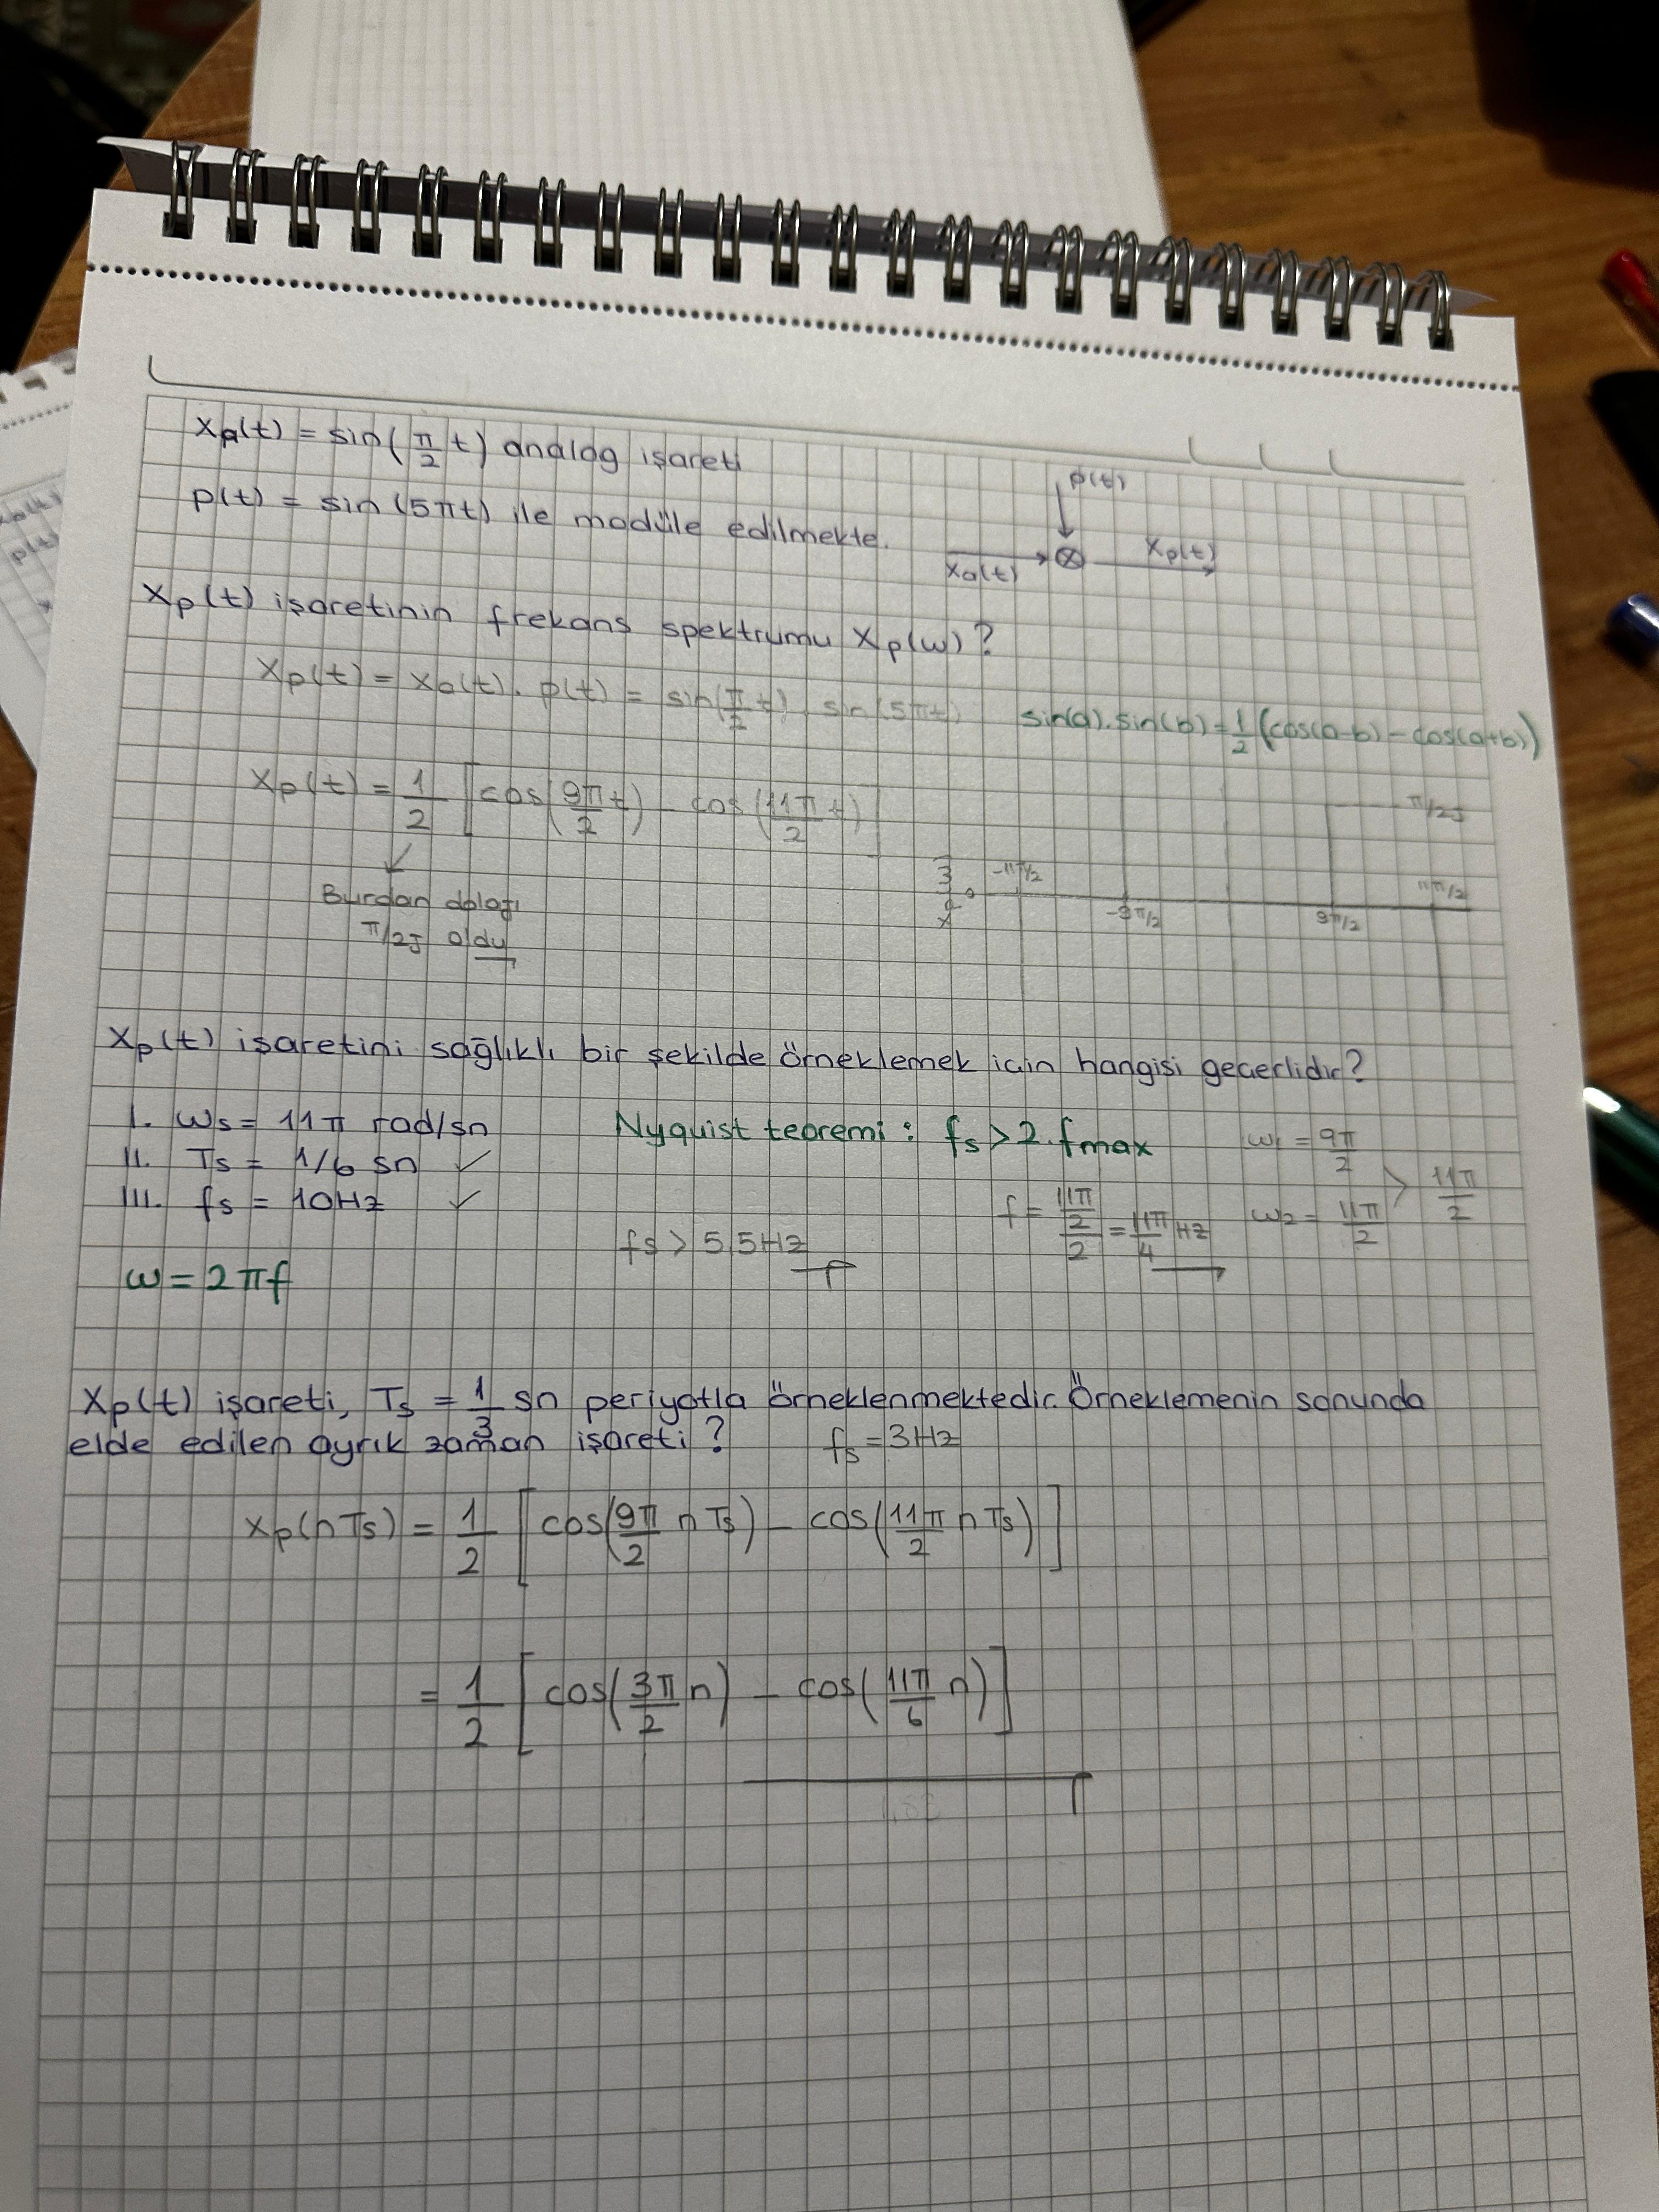 xa(t) = sin(π/2 t) analog işareti
p(t) = sin(5πt) ile modüle edilmekte.
p(t)
xa(t) ⊗ xp(t)
xp(t) işaretinin frekans spektrumu Xp(ω)?
xp(t) = xa(t) . p(t) = sin(π/2 t) . sin(5πt)
sin(a).sin(b) = 1/2 (cos(a-b) - cos(a+b))
xp(t) = 1/2 [cos(9π/2 t) - cos(11π/2 t)]
π/2j
Burdan dolayı
π/2j oldu
-11π/2 -9π/2 9π/2 11π/2
xp(t) işaretini sağlıklı bir şekilde örneklemek için hangisi geçerlidir?
I. ωs = 11π rad/sn
II. Ts = 1/6 sn ✓
III. fs = 10Hz ✓
ω = 2πf
Nyquist teoremi : fs > 2.fmax
fs > 5,5Hz
f = 11π/2 / 2 = 11π/4 Hz
ω1 = 9π/2
ω2 = 11π/2
> 11π/2
xp(t) işareti, Ts = 1/3 sn periyotla örneklenmektedir. Örneklemenin sonunda
elde edilen ayrık zaman işareti?
fs = 3Hz
xp(nTs) = 1/2 [cos(9π/2 nTs) - cos(11π/2 nTs)]
= 1/2 [cos(3π/2 n) - cos(11π/6 n)]